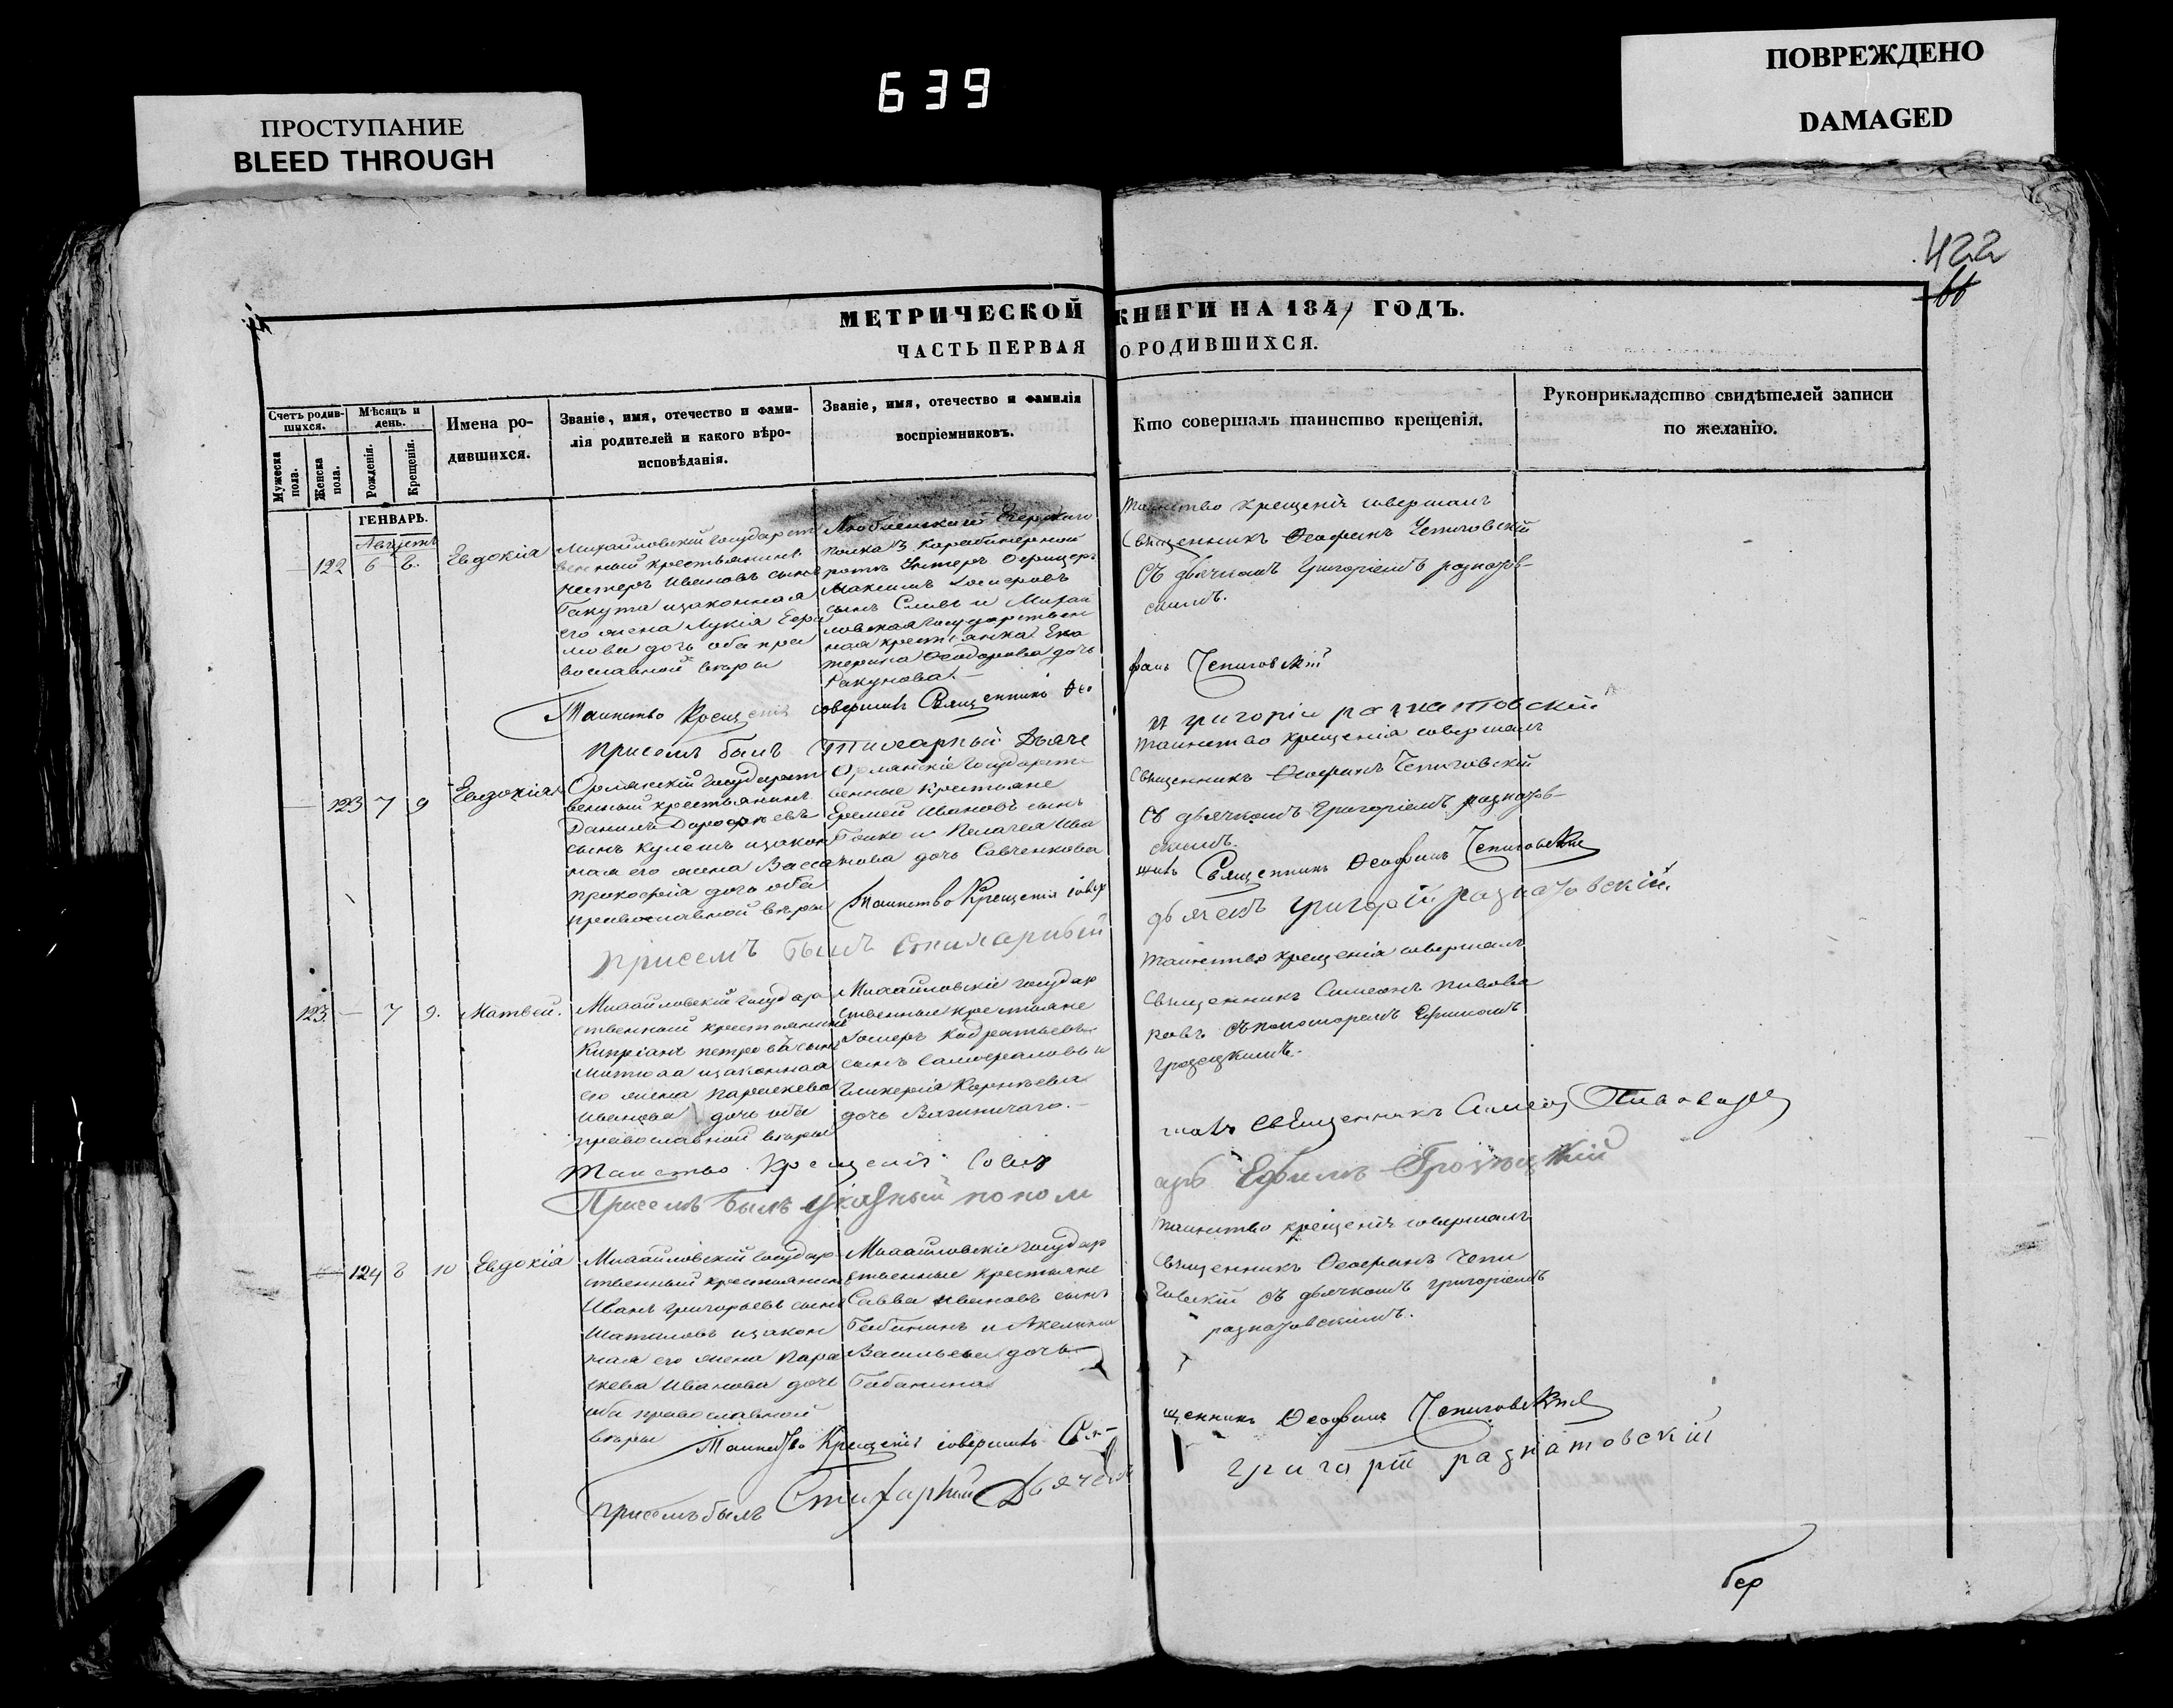 639
ПРОСТУПАНИЕ
BLEED THROUGH
ПОВРЕЖДЕНО
DAMAGED
422
66
МЕТРИЧЕСКОЙ КНИГИ НА 1847 ГОДЪ.
ЧАСТЬ ПЕРВАЯ О РОДИВШИХСЯ.
Счетъ родив-
шихся.
Мужеска
пола.
Женска
пола.
Мѣсяцъ и
день.
Рожденія.
Крещенія.
Имена ро-
дившихся.
Званіе, имя, отечество и фами-
лія родителей и какого вѣро-
исповѣданія.
Званіе, имя, отечество и фамилія
воспріемниковъ.
Кто совершалъ таинство крещенія.
Рукоприкладство свидѣтелей записи
по желанію.
ГЕНВАРЬ.
Августъ
122 6 8.
Евдокія
Михайловскій государст
венный крестьянинъ
Нестеръ Ивановъ сынъ
Гакута изаконная
его жена Лукія Ефри
мова дочь оба пра
вославной вѣры
Егерскаго
полка 3 Карабинерной
роты Унтеръ Офицеръ
Максимъ сынъ
и Михай
ловская государствен
ная крестьянка Ека
терина Ѳеодорова дочь
Ракунова.
Таинство крещенія совершалъ
Священникъ Ѳеофанъ Чепиговскій
Съ дьячкомъ Григоріемъ разнатов-
скимъ.
Таинство Крещенія совершилъ Священникъ Ѳео
фанъ Чепиговскій
присемъ былъ стихарный Дьяче
григорій разнатовскій
123 7 9
Евдокія
Орлянскій государст
венный крестьянинъ
Данилъ Дорофѣевъ
сынъ Кулешъ изакон
ная его жена Васса
Прокофія дочь оба
православной вѣры
Орлянскіе государст-
венные крестьяне
Еремей Ивановъ сынъ
Бойко и Пелагея Ива
нова дочь Савченкова
Таинство крещенія совершалъ
Священникъ Ѳеофанъ Чепиговскій
Съ дьячкомъ Григоріемъ разнатов-
скимъ.
Таинство Крещенія совер
шилъ Священникъ Ѳеофанъ Чепиговскій
присемъ былъ стихарный
дьячекъ григорій разнатовскій.
123. — 7 9.
Матвей.
Михайловскій государ
ственный крестьянинъ
Кипріанъ петровъ сынъ
Митюла изаконная
его жена параскева
Иванова дочь оба
православной вѣры
Михайловскіе государ
ственные крестьяне
сынъ Самофаловъ и
Гликерія Корнѣева
дочь
Таинство крещенія совершалъ
Священникъ Симеонъ пивова
ровъ съ пономаремъ Ефимомъ
Таинство Крещенія совер
шалъ Священникъ Симеонъ Пивоваровъ
Присемъ былъ указный поном
арь Ефимъ
124 8 10
Евдокія
Михайловскій государ
ственный крестьянинъ
Иванъ григорьевъ сынъ
Шаталовъ изакон
ная его жена Пара
скева Иванова дочь
оба православной
вѣры
Михайловскіе государ
ственные крестьяне
Савва Ивановъ сынъ
Бабанинъ и Акелина
Васильева дочь
Бабанина
Таинство крещенія совершалъ
Священникъ Ѳеофанъ Чепи
говскій съ дьячкомъ григоріемъ
разнатовскимъ.
Таинство Крещенія совершилъ Свя-
щенникъ Ѳеофанъ Чепиговскій
присемъ былъ Стихарный Дьячекъ
григорій разнатовскій